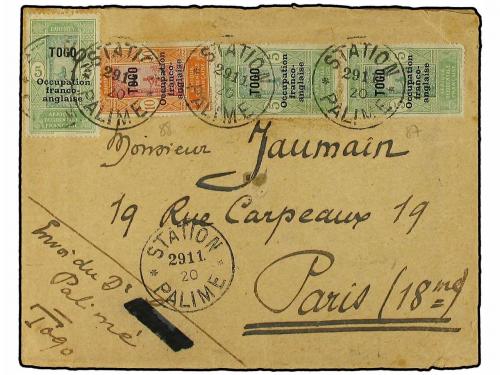 TOGO
Occupation
franco-
anglaise
5
STATION
2911
20
PALIME
TOGO
Occupation
franco-
anglaise
10
STATION
2911
20
PALIME
TOGO
Occupation
franco-
anglaise
5
TOGO
Occupation
franco-
anglaise
5
STATION
2911
20
PALIME
88
87
Monsieur Jaumain
19 Rue Carpeaux 19
Paris (18me)
* STATION *
2911
20
PALIME
Envoi du Dr
Palimé
Togo